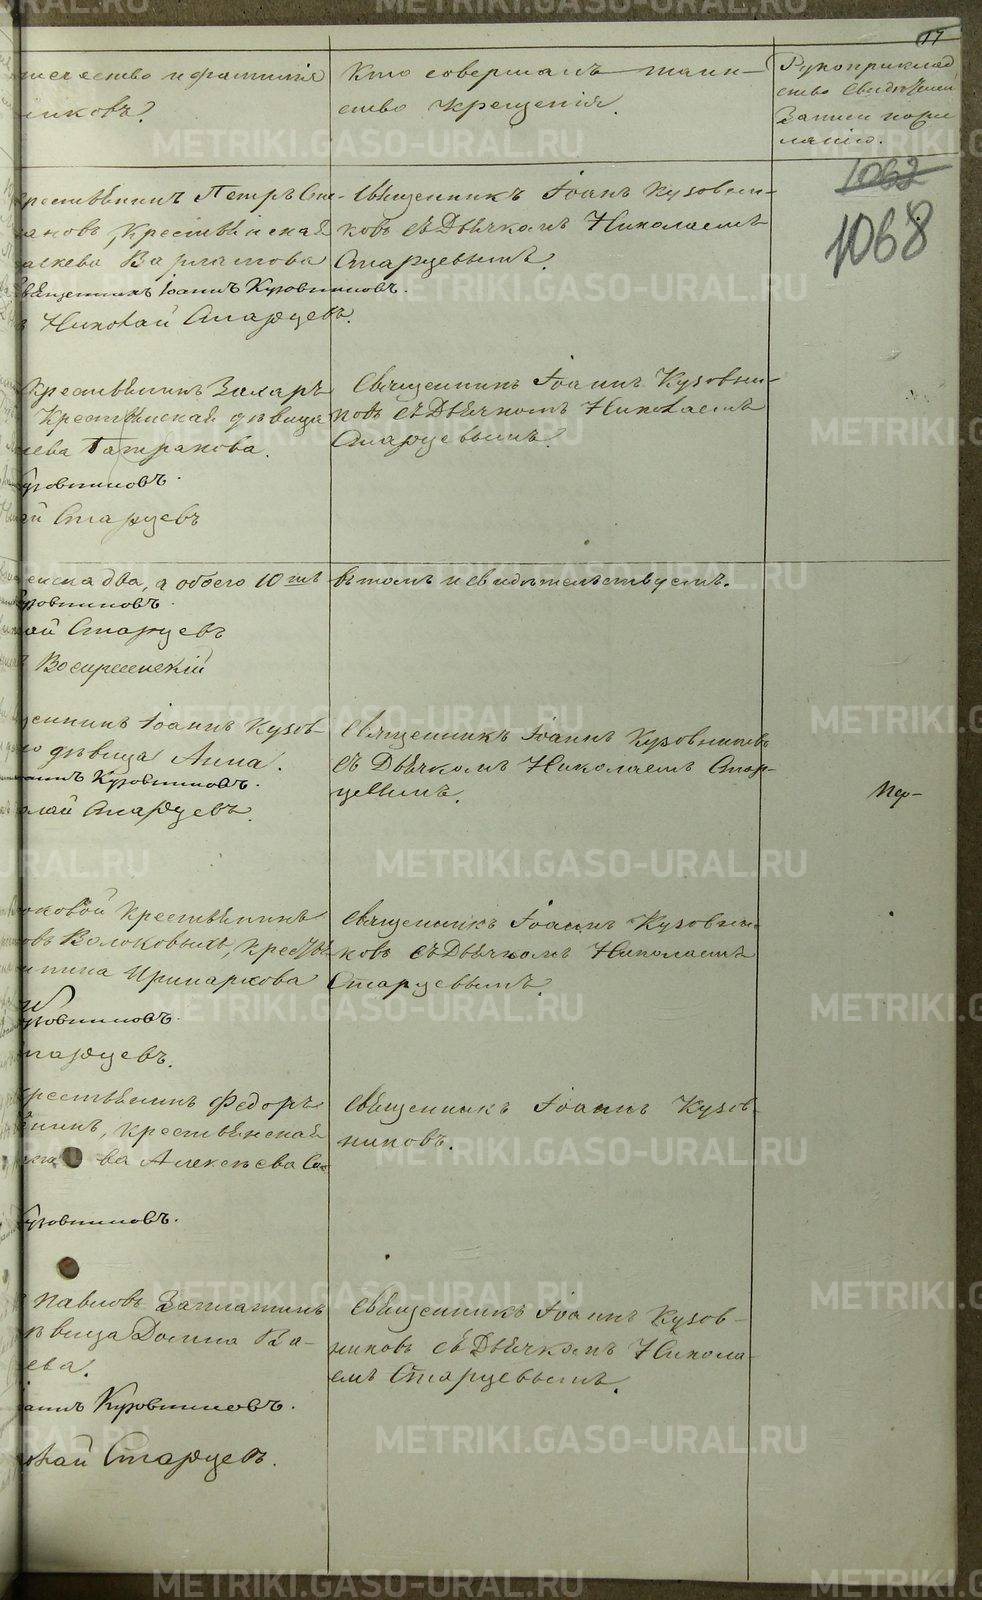 17
отчество и фамилія
никовъ?
Кто совершалъ таин-
ство крещенія.
Рукоприклад
ство свидѣтелей
записи по же
ланію.
1062
1068
Крестьянинъ Петръ Сте-
пановъ, Крестьянская
Варламова
Священникъ Іоаннъ Кузовниковъ.
Николай Старцевъ.
Священникъ Іоанъ Кузовни-
ковъ съ Дьячкомъ Николаемъ
Старцевымъ.
Крестьянинъ Захаръ
Крестьянская дѣвица
Батракова.
Кузовниковъ.
Старцевъ
Священникъ Іоаннъ Кузовни-
ковъ съ Дьячкомъ Николаемъ
Старцевымъ.
женска два, а обоего 10ть въ томъ и свидѣтельствуемъ.
Кузовниковъ.
Старцевъ
Воскресенскій
Священникъ Іоаннъ Кузов-
дѣвица Анна.
Іоаннъ Кузовниковъ.
Николай Старцевъ.
Священникъ Іоаннъ Кузовниковъ
съ Дьячкомъ Николаемъ Стар-
цевымъ.
Пер-
Крестьянинъ
Волоковыхъ, Крест
Иринархова
Кузовниковъ.
Старцевъ.
Священникъ Іоаннъ Кузовни-
ковъ съ Дьячкомъ Николаемъ
Старцевымъ.
Крестьянинъ Федоръ
Крестьянская
ва Алексѣева Со-
Кузовниковъ.
Священникъ Іоаннъ Кузов-
никовъ.
Павловъ Заплатинъ
дѣвица Домна Ва-
ева.
Іоаннъ Кузовниковъ.
Николай Старцевъ.
Священникъ Іоаннъ Кузов-
никовъ съ Дьячкомъ Никола-
емъ Старцевымъ.
METRIKI.GASO-URAL.RU